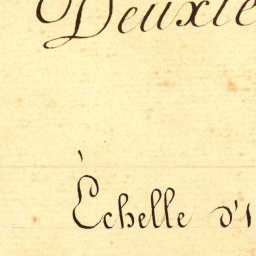 Deuxiè
Échelle d'1